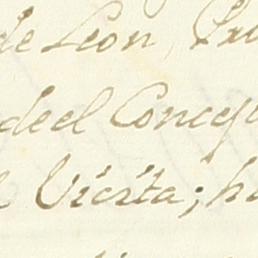 de Leon,
deel Concep
Vicita; h